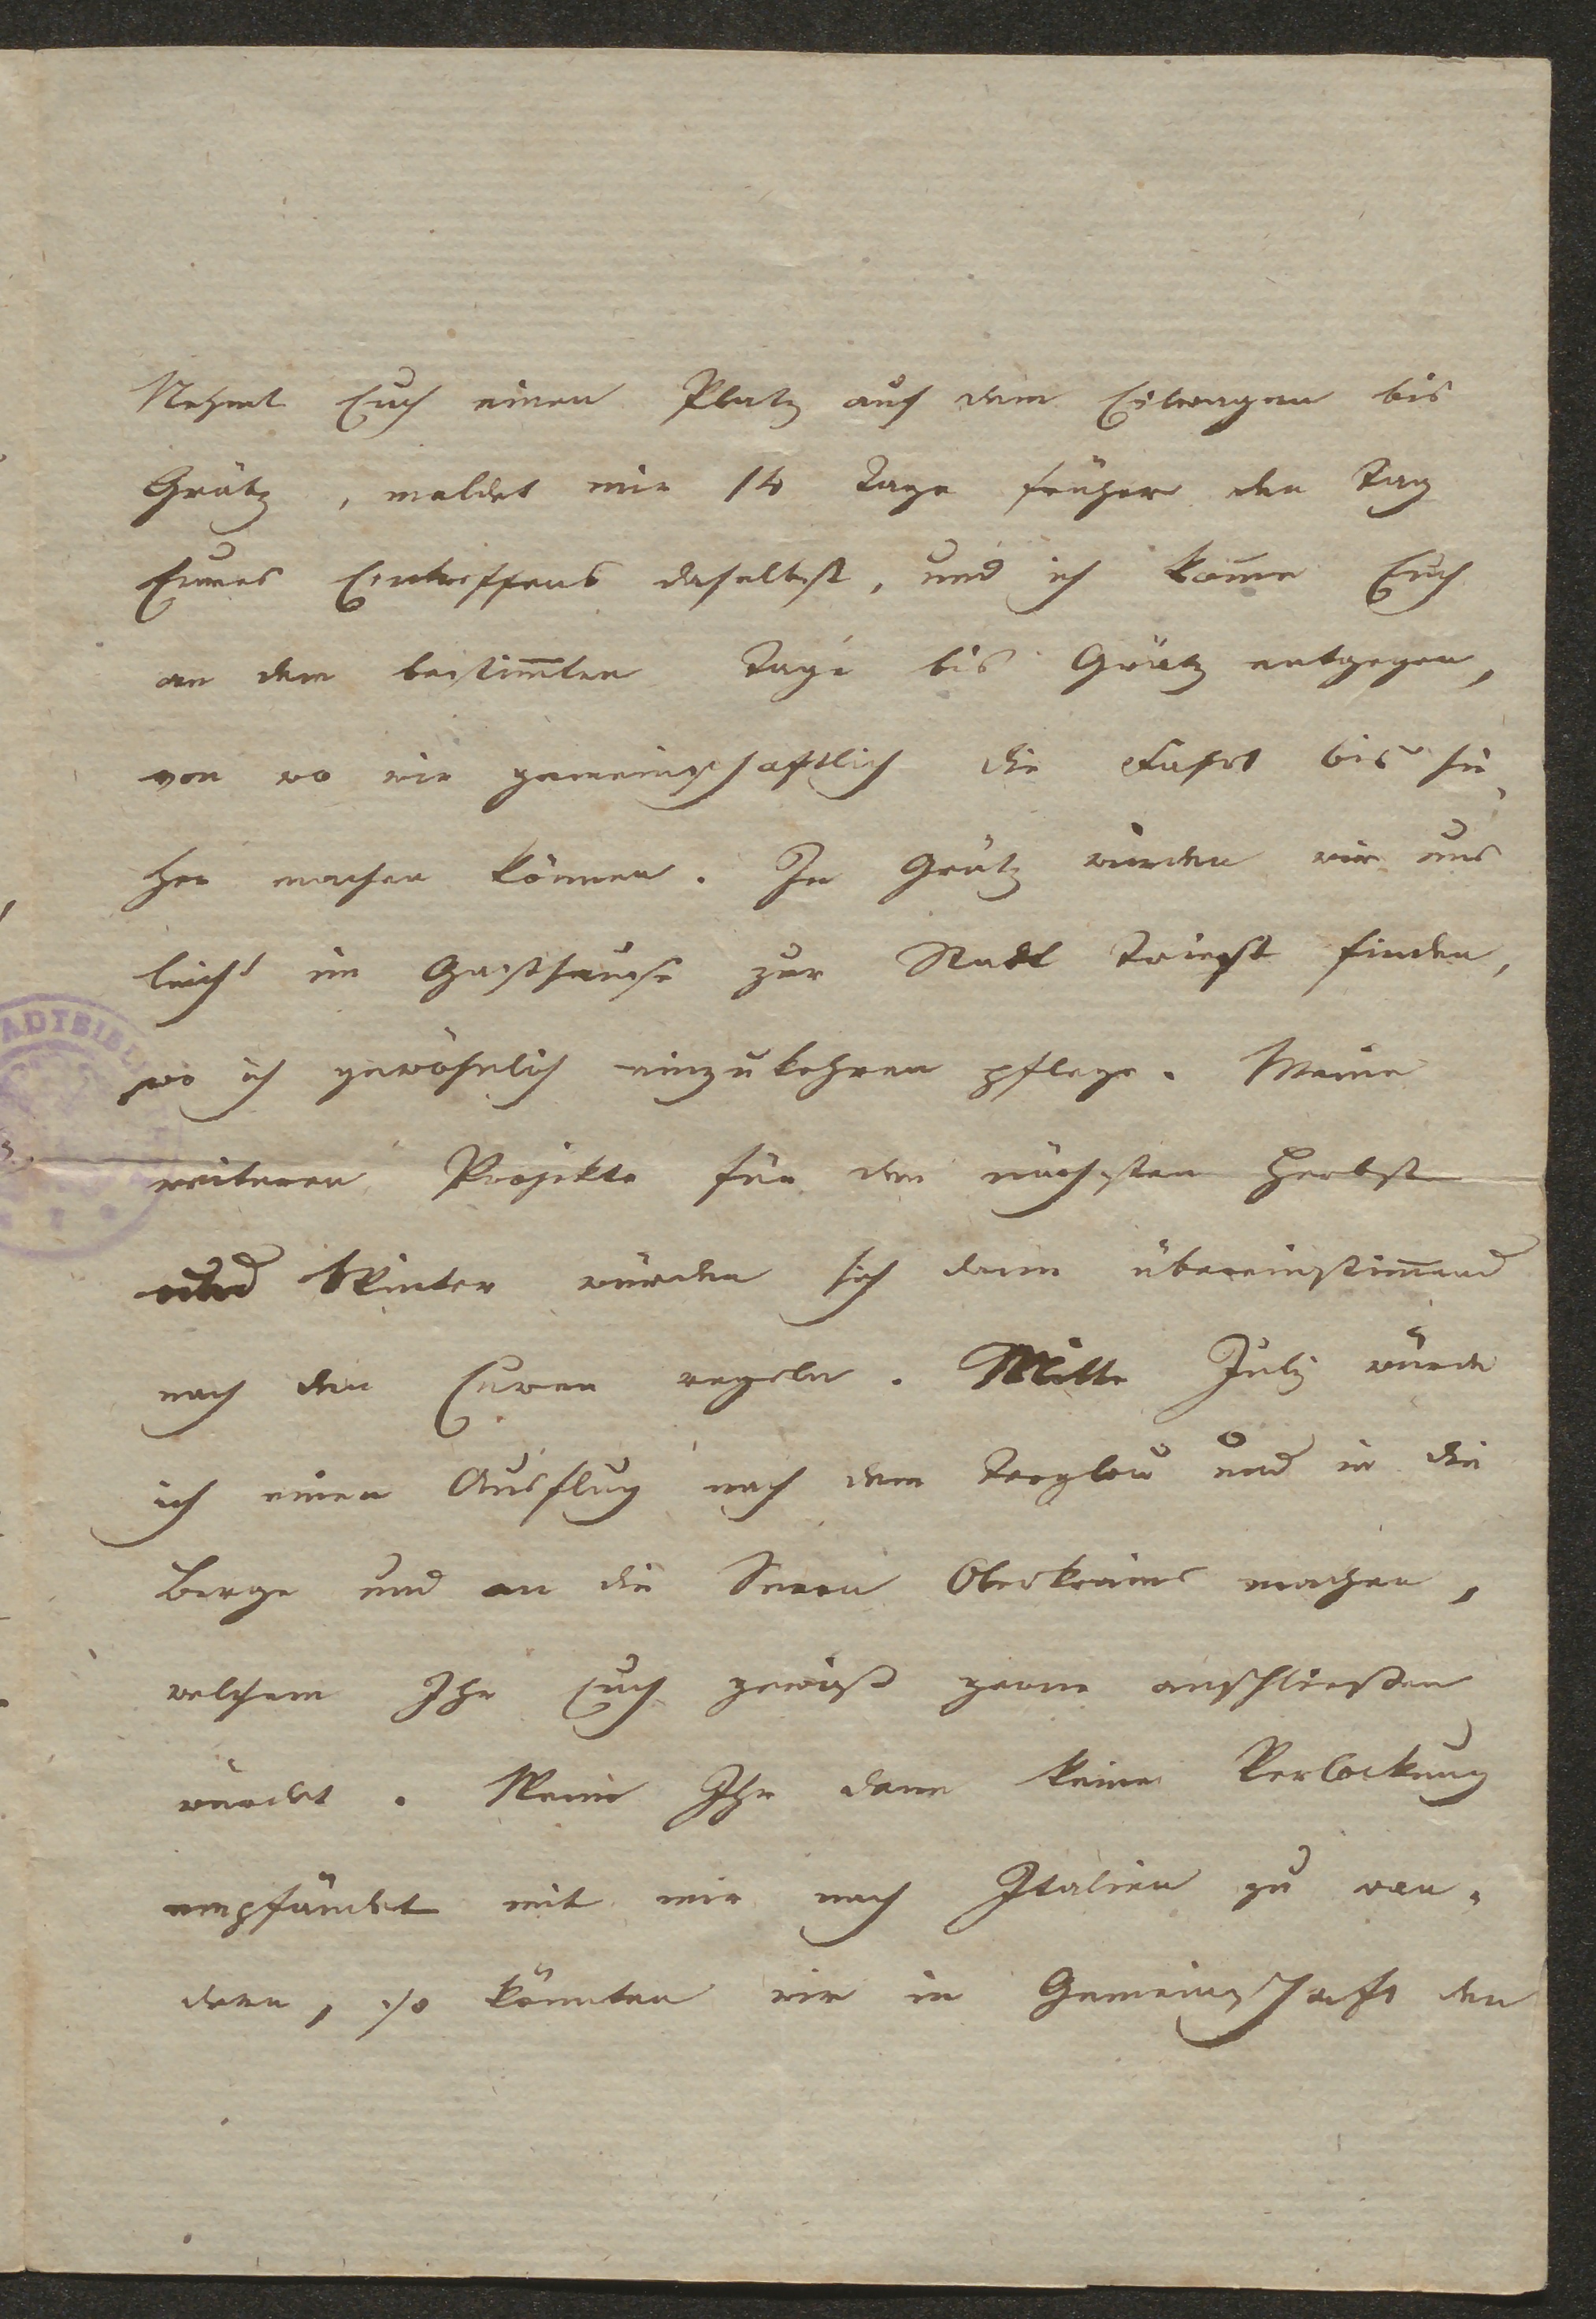 Nehmt Euch einen Platz auf dem Eilwagen bis
Grätz, meldet mir 14 Tage früher den Tag
Eures Eintreffens daselbst, und ich kom̄e Euch
an dem bestim̄ten Tage bis Grätz entgegen,
von wo wir gemeinschaftlich die Fahrt bis hie,
her machen können. In Grätz würden wir uns
leicht im Gasthause zur Stadt Triest finden,
wo ich gewöhnlich einzukehren pflege. Meine
weiteren Projekte für den nächsten Herbst
und Winter würden sich dann übereinstim̄end
nach den Euren regeln. Mitte July würde
ich einen Ausflug nach dem Terglou und in die
Berge und an die Seeen Oberkrains machen,
welchem Ihr Euch gewiß gerne anschließen
würdet. Wenn Ihr dann keine Verlockung
empfändet mit mir nach Italien zu wan-
dern, so könnten wir in Gemeinschaft den
ADTBIBL